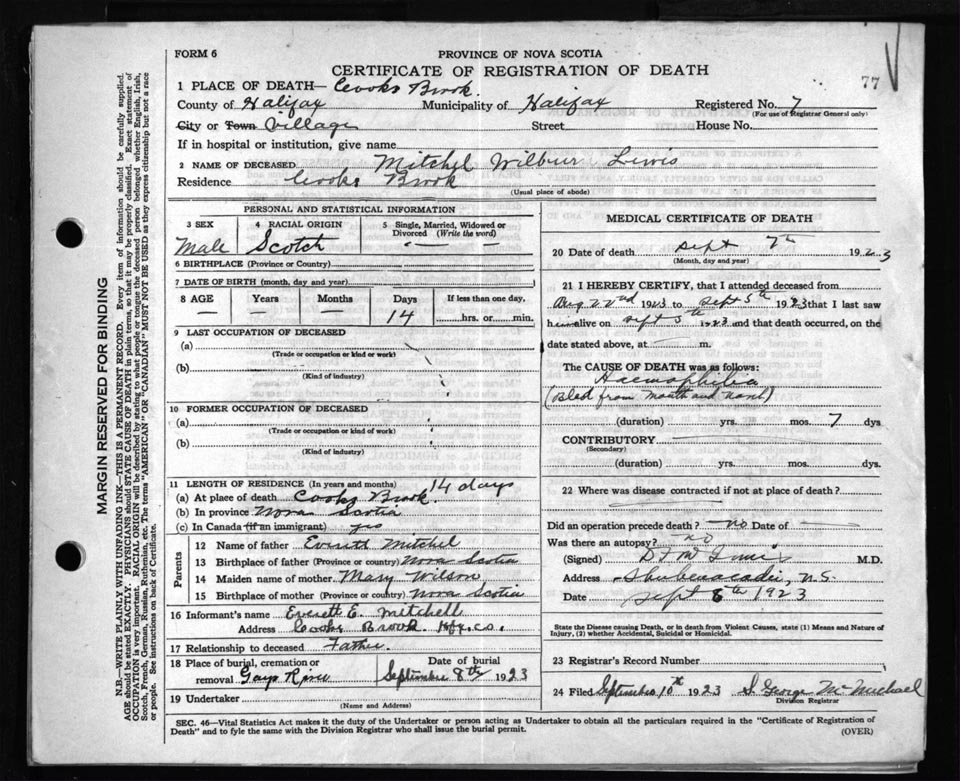 FORM 6
PROVINCE OF NOVA SCOTIA
CERTIFICATE OF REGISTRATION OF DEATH
77
1 PLACE OF DEATH— Cooks Brook
County of Halifax Municipality of Halifax Registered No. 7
(For use of Registrar General only)
City or Town Village Street House No.
If in hospital or institution, give name
2 NAME OF DECEASED Mitchel Wilbur Lewis
Residence Cooks Brook
(Usual place of abode)
PERSONAL AND STATISTICAL INFORMATION
3 SEX 4 RACIAL ORIGIN 5 Single, Married, Widowed or Divorced (Write the word)
Male Scotch —
6 BIRTHPLACE (Province or Country)
7 DATE OF BIRTH (month, day and year)
8 AGE Years Months Days If less than one day,
— — — 14 hrs. or min.
9 LAST OCCUPATION OF DECEASED
(a)
(Trade or occupation or kind or work)
(b)
(Kind of industry)
10 FORMER OCCUPATION OF DECEASED
(a)
(Trade or occupation or kind or work)
(b)
(Kind of industry)
11 LENGTH OF RESIDENCE (In years and months) 14 days
(a) At place of death Cooks Brook
(b) In province Nova Scotia
(c) In Canada (if an immigrant) yes
Parents
12 Name of father Everett Mitchel
13 Birthplace of father (Province or country) Nova Scotia
14 Maiden name of mother Mary Wilson
15 Birthplace of mother (Province or country) Nova Scotia
16 Informant's name Everett E. Mitchell
Address Cooks Brook Hfx. co.
17 Relationship to deceased Father
18 Place of burial, cremation or Date of burial
removal Gays River September 8th 1923
19 Undertaker
(Name and Address)
MEDICAL CERTIFICATE OF DEATH
20 Date of death Sept 7th 1923
(Month, day and year)
21 I HEREBY CERTIFY, that I attended deceased from
Aug 22nd 1923 to Sept 5th 1923 that I last saw
him alive on Sept 5th 1923 and that death occurred, on the
date stated above, at m.
The CAUSE OF DEATH was as follows:
Haemophilia
(Bled from mouth and )
(duration) yrs. mos. 7 dys
CONTRIBUTORY
(Secondary)
(duration) yrs. mos. dys.
22 Where was disease contracted if not at place of death?
Did an operation precede death? no Date of —
Was there an autopsy? no
(Signed) M.D.
Address Shubenacadie, N.S.
Date Sept 8th 1923
State the Disease causing Death, or in death from Violent Causes, state (1) Means and Nature of
Injury, (2) whether Accidental, Suicidal or Homicidal.
23 Registrar's Record Number
24 Filed September 10th 1923 S. George McMichael
Division Registrar
SEC. 46—Vital Statistics Act makes it the duty of the Undertaker or person acting as Undertaker to obtain all the particulars required in the "Certificate of Registration of
Death" and to fyle the same with the Division Registrar who shall issue the burial permit.
(OVER)
MARGIN RESERVED FOR BINDING
N.B.—WRITE PLAINLY WITH UNFADING INK—THIS IS A PERMANENT RECORD. Every item of information should be carefully supplied.
AGE should be stated EXACTLY. PHYSICIANS should STATE CAUSE OF DEATH in plain terms, so that it may be properly classified. Exact statement of
OCCUPATION is very important. RACIAL ORIGIN will be described by stating to what people or tongue the deceased person belonged whether English, Irish,
Scotch, French, German, Russian, Ruthenian, etc. The terms "AMERICAN" OR "CANADIAN" MUST NOT BE USED as they express citizenship but not a race
or people. See instructions on back of Certificate.